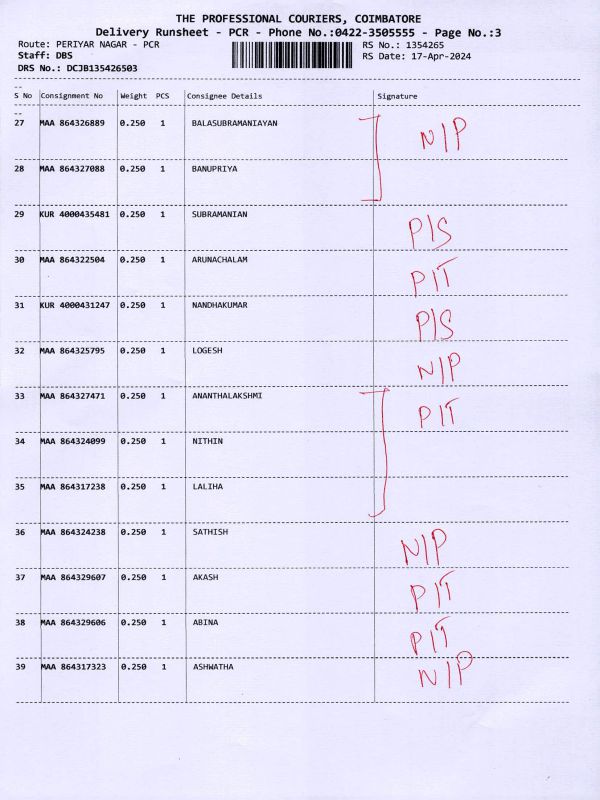 THE PROFESSIONAL COURIERS, COIMBATORE
Delivery Runsheet - PCR - Phone No.:0422-3505555 - Page No.:3
Route: PERIYAR NAGAR - PCR RS No.: 1354265
Staff: DBS RS Date: 17-Apr-2024
DRS No.: DCJB135426503
S No Consignment No Weight PCS Consignee Details Signature
27 MAA 864326889 0.250 1 BALASUBRAMANIAYAN N/P
28 MAA 864327088 0.250 1 BANUPRIYA
29 KUR 4000435481 0.250 1 SUBRAMANIAN P/S
30 MAA 864322504 0.250 1 ARUNACHALAM P/T
31 KUR 4000431247 0.250 1 NANDHAKUMAR P/S
32 MAA 864325795 0.250 1 LOGESH N/P
33 MAA 864327471 0.250 1 ANANTHALAKSHMI P/T
34 MAA 864324099 0.250 1 NITHIN
35 MAA 864317238 0.250 1 LALIHA
36 MAA 864324238 0.250 1 SATHISH N/P
37 MAA 864329607 0.250 1 AKASH P/T
38 MAA 864329606 0.250 1 ABINA P/T
39 MAA 864317323 0.250 1 ASHWATHA N/P